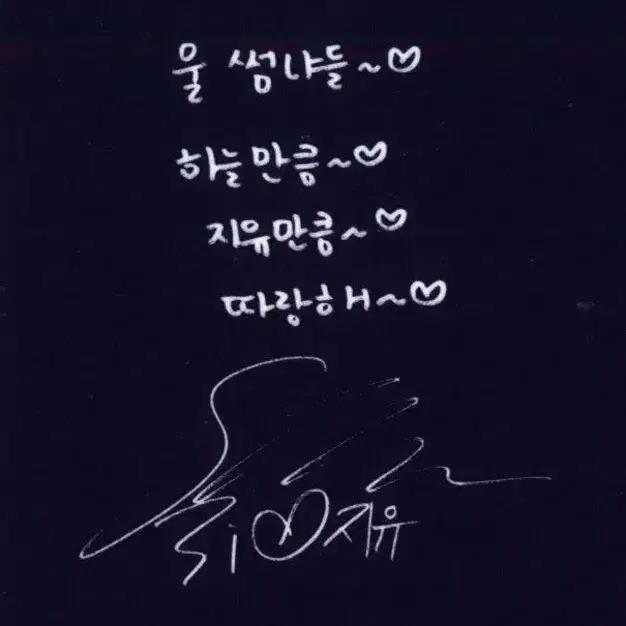 울 썸냐들~♡
하늘만큼~♡
지유만큼~♡
따랑해~♡
지유